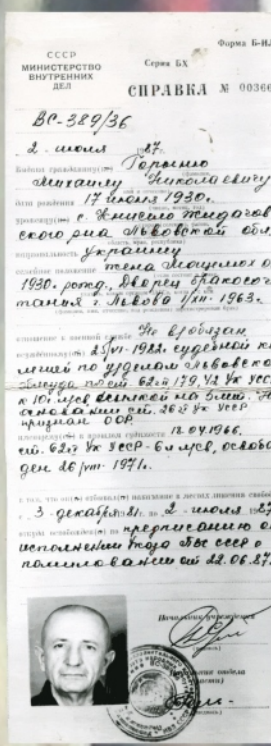 Форма Б-
СССР
МИНИСТЕРСТВО
ВНУТРЕННИХ
ДЕЛ
Серия БХ
СПРАВКА № 00366
ВС-389/36
2 - июля 87.
Выдана гражданину(ке) Горыню
Михаилу Николаевичу
дата рождения 17 июня 1930.
уроженцу(ке) с. Книсело Жидачов
ского р-на Львовской обл
национальность украинец
семейное положение жена
1930. рожд., Дворец бракосоч
тания г. Львова 1/XII - 1963.
отношение к военной службе Не в/обязан
осужденному(ой) 25/VI - 1982. судебной
легией по уг.делам Львовско
по ст. 62 ч II, 179, 42 УК УССР
к 10 г. л/св, ссылкой на 5 лет.
основании ст. 26 УК УССР
признан ООР.
имевшему(ей) в прошлом судимости 18.04.1966.
ст. 62 УК УССР - 6 л л/св, освобо
ден 26/VIII - 1971г.
в том, что он(а) отбывал(а) наказание в местах лишения свобо
с 3 - декабря 81 г. по 2 - июля 1987
откуда освобожден(а) по предписанию о
исполнении Указа ПВС СССР о
помиловании от 22.06.87.
Начальник учреждения
(подпись)
Начальник отдела